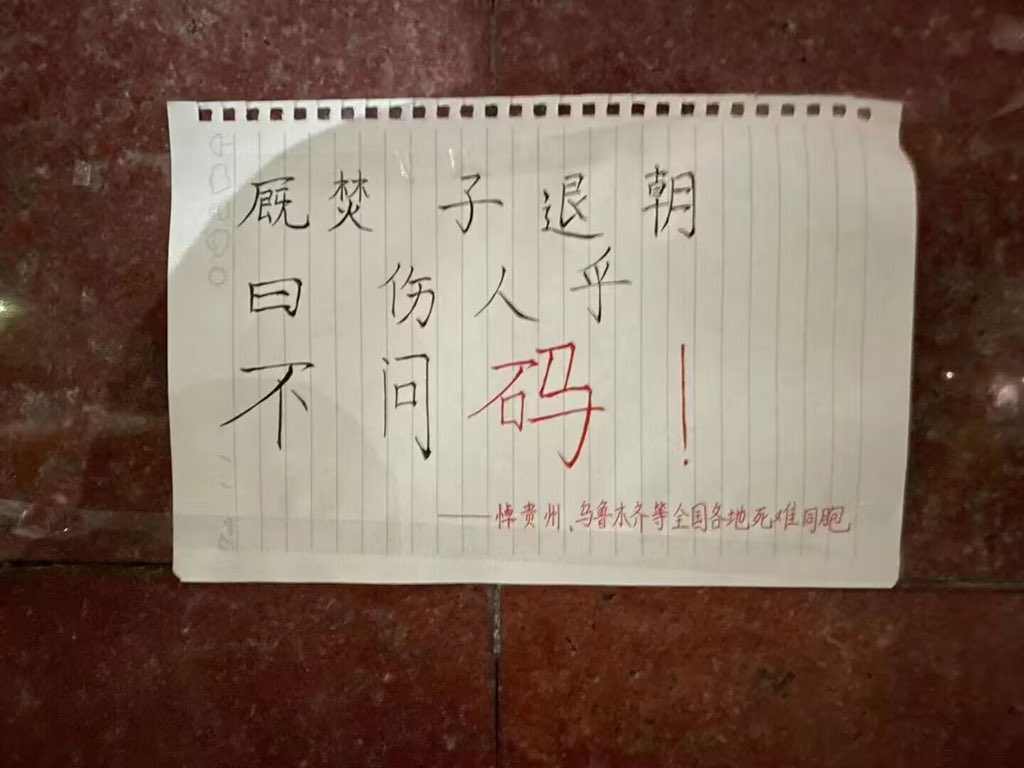 厩焚 子退朝
曰 伤人乎
不问码！
——悼贵州、乌鲁木齐等全国各地死难同胞